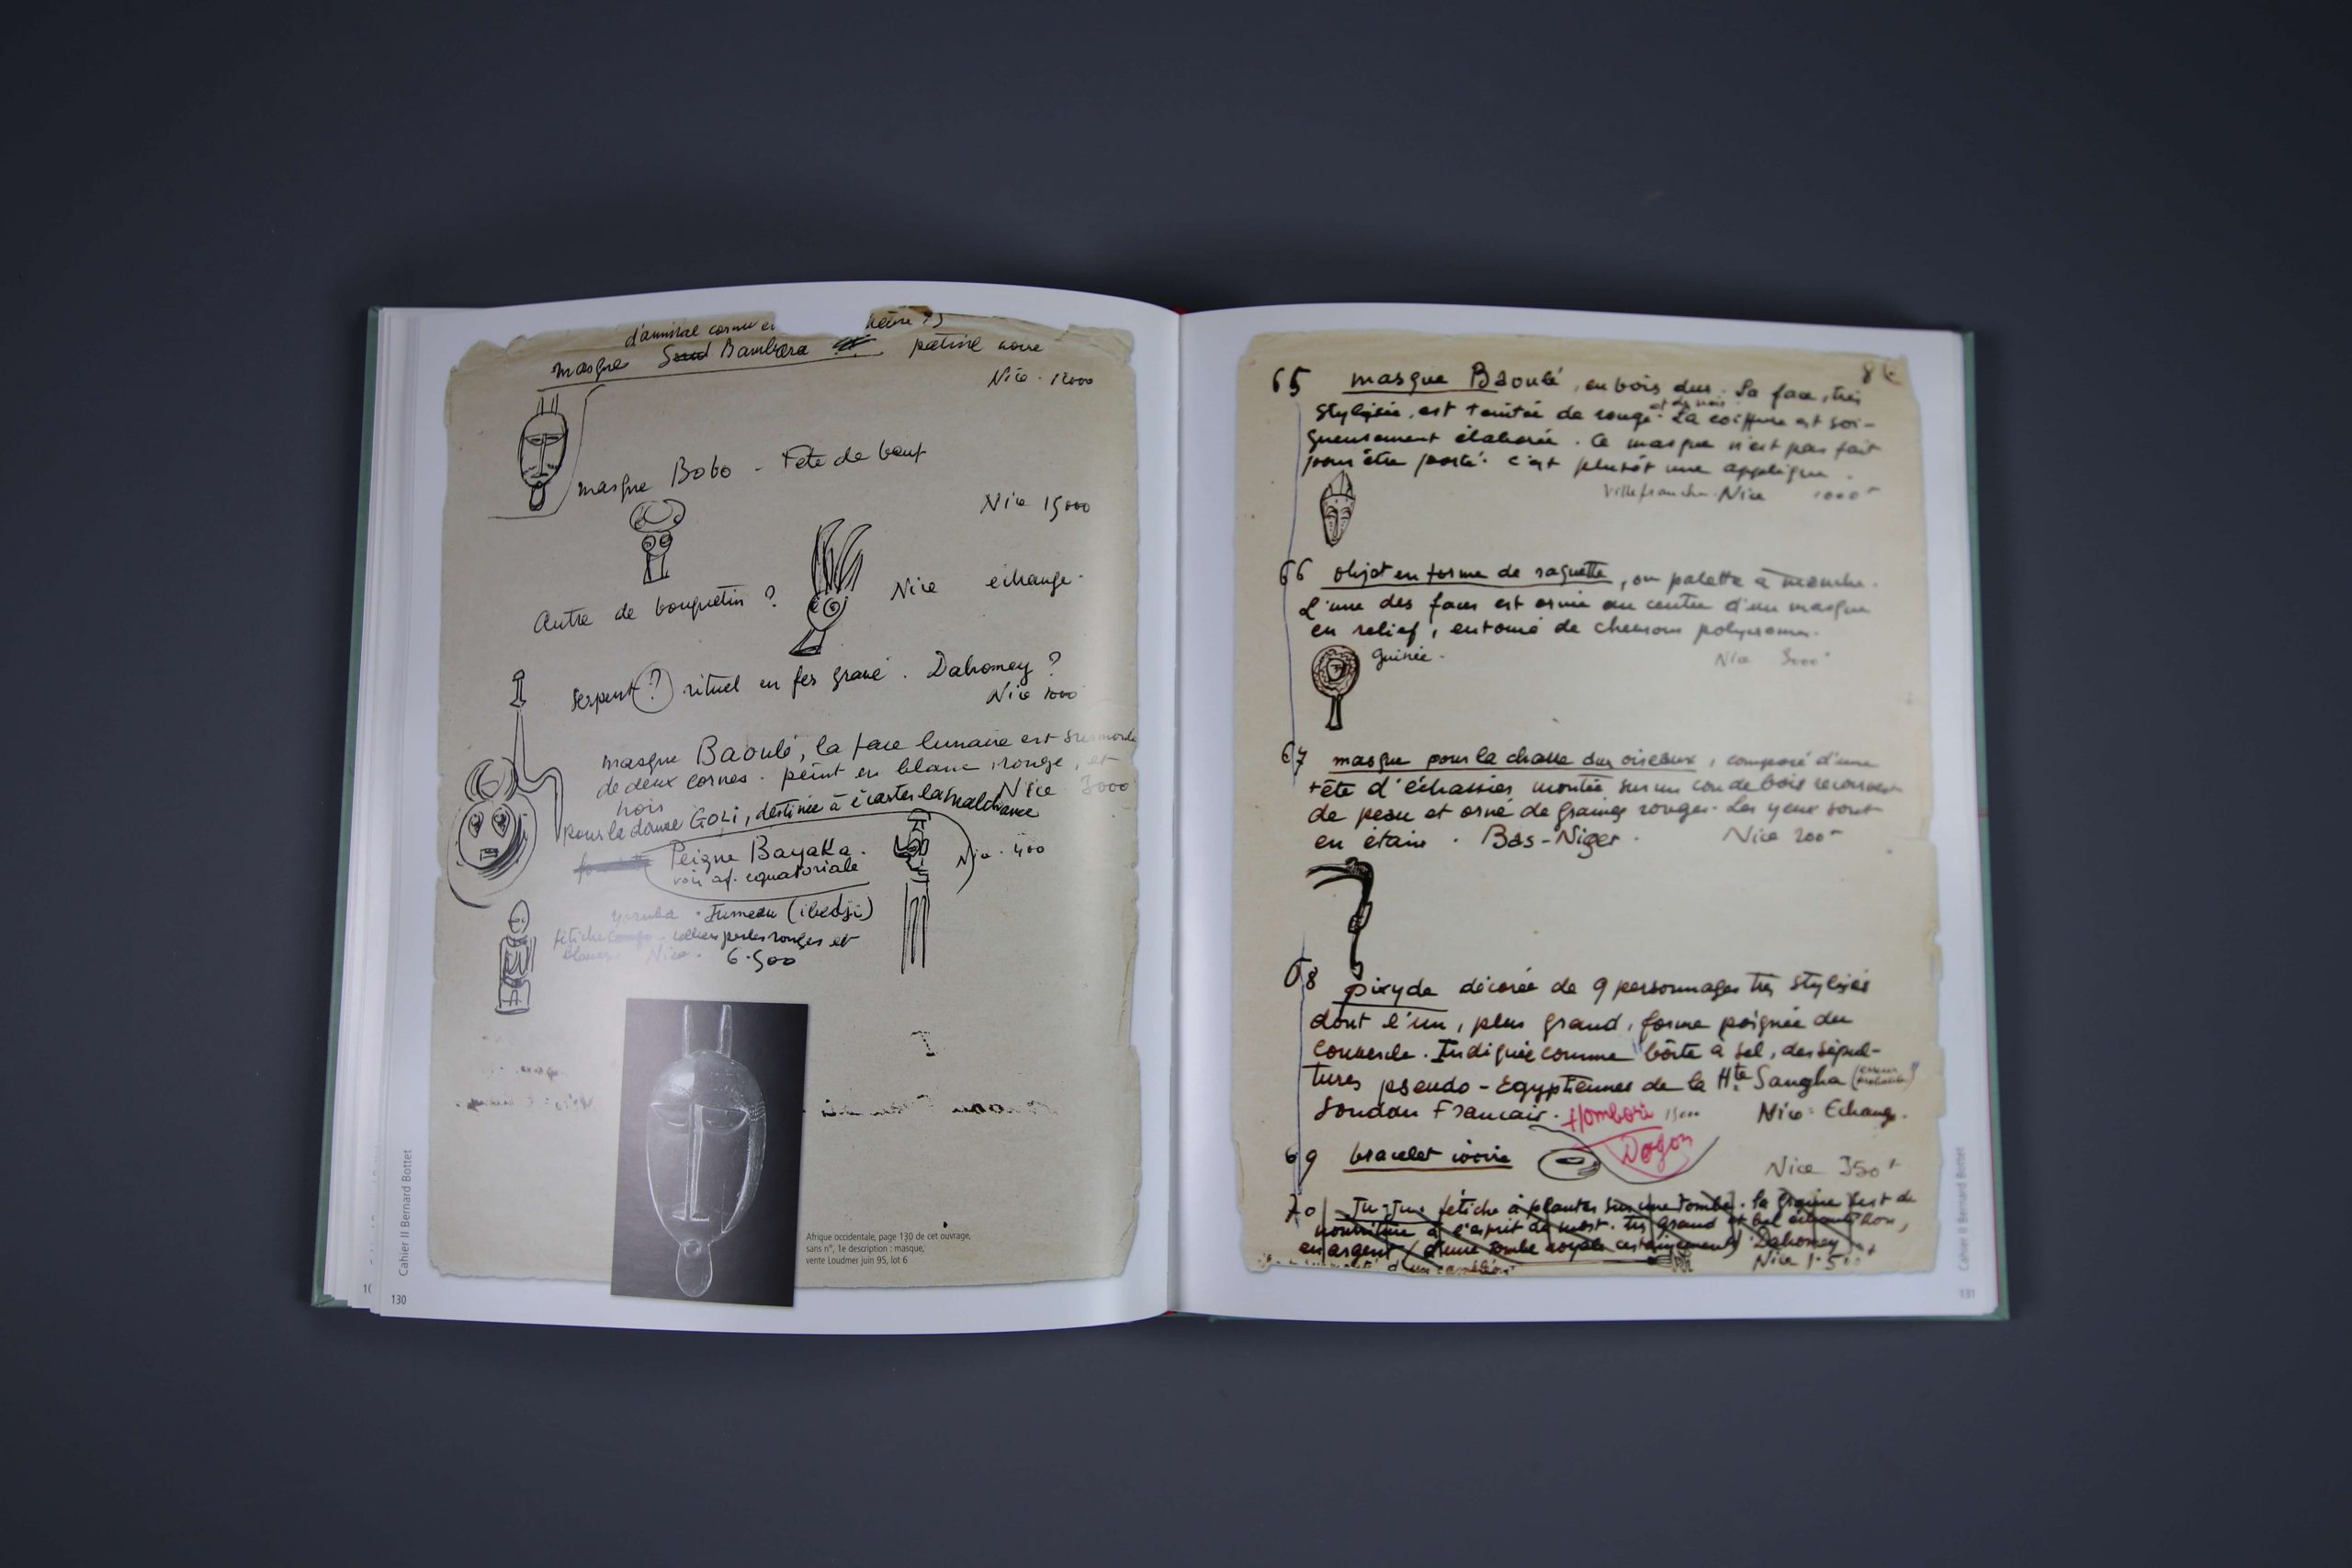 d'animal cornu et
masque Bambara patine noire
Nice. 12000
masque Bobo - Tête de bœuf
Nice 15000
Autre de bouquetin ? Nice echange.
Serpent (?) rituel en fer gravé. Dahomey ?
Nice 1000
masque Baoulé, la face lunaire est surmonte
de deux cornes. peint en blanc, rouge, et
noir Nice 3000
pour la danse GOLI, destinée à écarter la malchance
Peigne Bayaka. Nice. 400
voir af. equatoriale
yoruba. Jumeau (ibedji)
fétiche collier perles rouges et
blanes Nice. 6.500
Afrique occidentale, page 130 de cet ouvrage,
sans n°, 1e description : masque,
vente Loudmer juin 95, lot 6
Cahier II Bernard Bottet
130
65 masque Baoulé, en bois dur. Sa face, très
stylisée, est teintée de rouge et de noir. La coiffure est soi-
gneusement élaborée. Ce masque n'est pas fait
pour être porté. c'est plutôt une applique.
Villefranche. Nice 1000
66 objet en forme de raquette, ou palette à manche.
L'une des faces est ornée au centre d'un masque
en relief, entouré de chevrons polychromes.
Guinée. Nice 3000
67 masque pour la chasse aux oiseaux, composé d'une
tête d'échassier montée sur un cou de bois recouvert
de peau et orné de graines rouges. Les yeux sont
en étain. Bas-Niger. Nice 200
68 pixyde décorée de 9 personnages très stylisés
dont l'un, plus grand, forme poignée du
couvercle. Indiquée comme "boîte à sel, des sépul-
tures pseudo-Egyptiennes de la Hte Sangha (erreur probable)"
Soudan Francais. Hombori 15000 Nice = Echange.
Dogon
69 bracelet ivoire Nice 350
70 Ju-Ju. fétiche à planter sur une tombe. la graine sert de
nourriture à l'esprit du mort. très grand et bel échantillon,
en argent (d'une tombe royale certainement) Dahomey
Nice 1.500
Cahier II Bernard Bottet
131